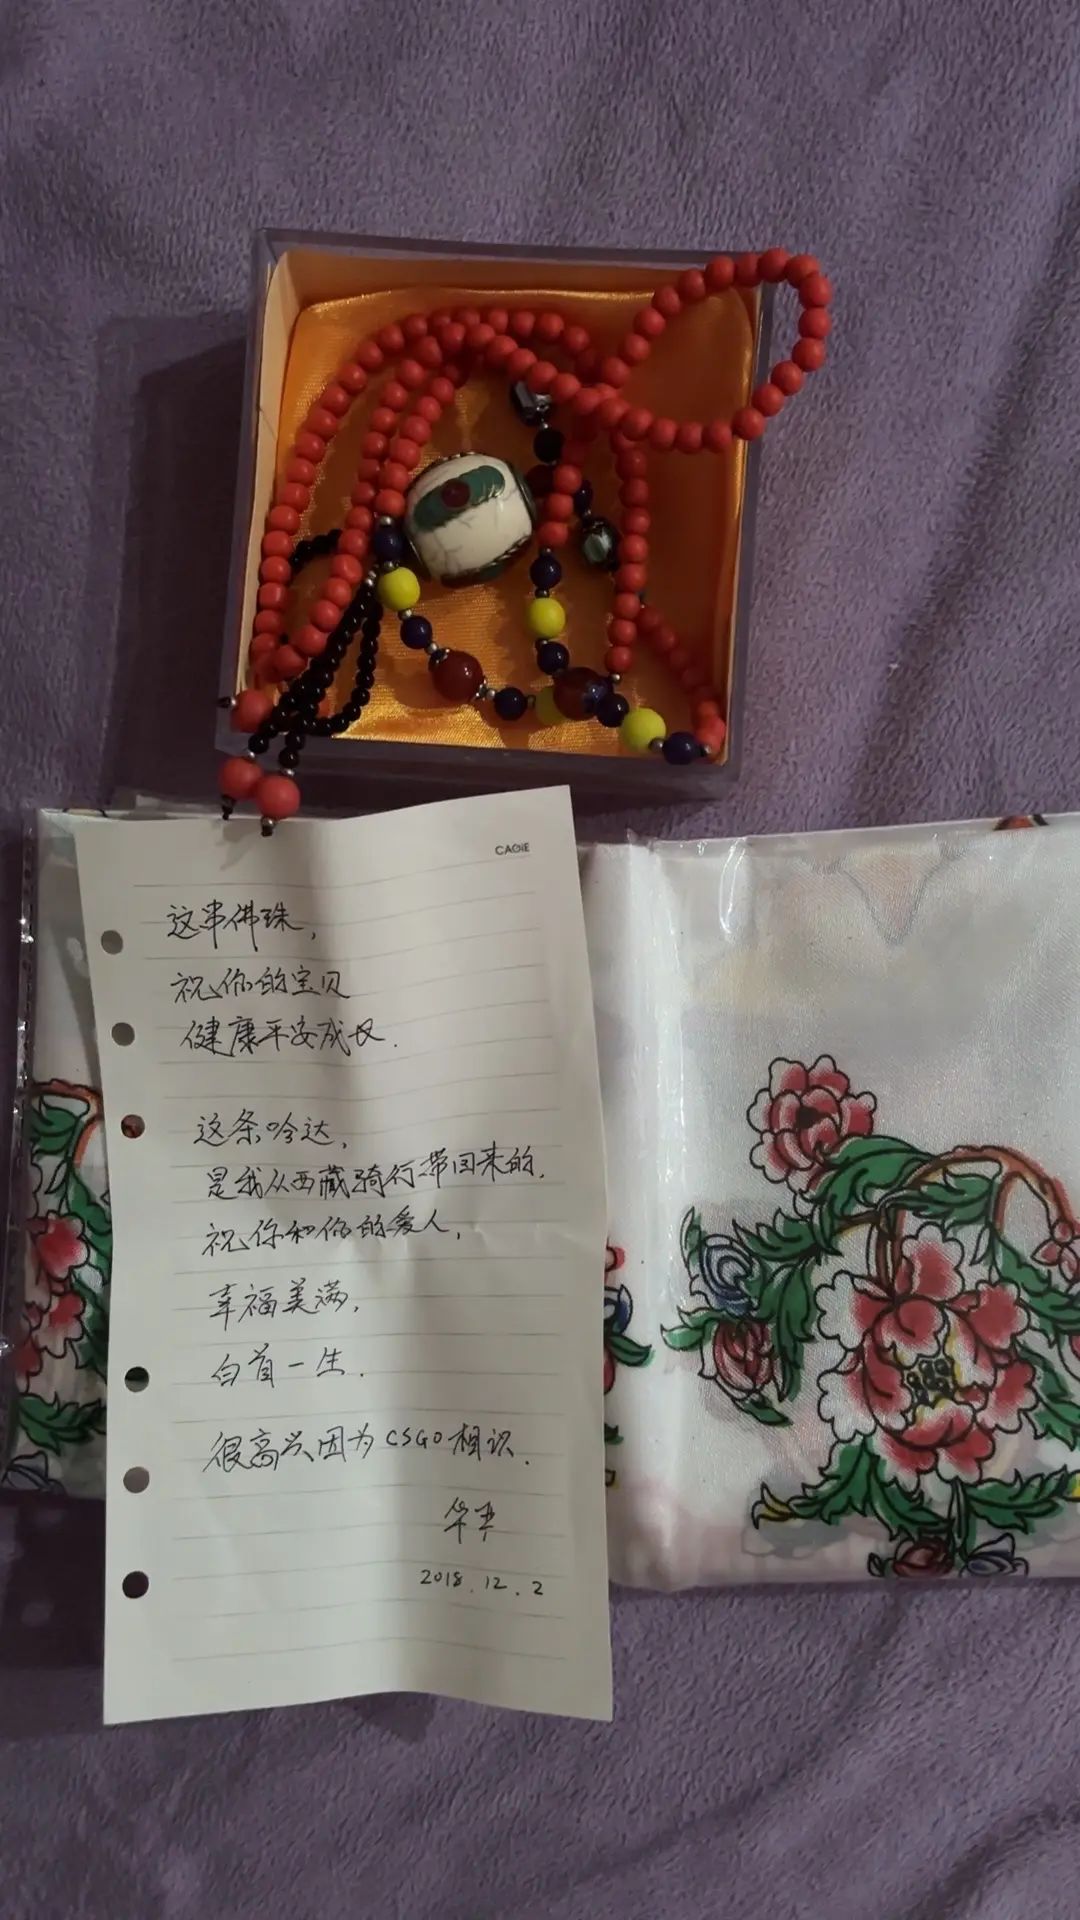 CAGIE
这串佛珠,
祝你的宝贝
健康平安成长.
这条哈达,
是我从西藏骑行带回来的.
祝你和你的爱人,
幸福美满,
白首一生.
很高兴因为CSGO相识.
2018.12.2